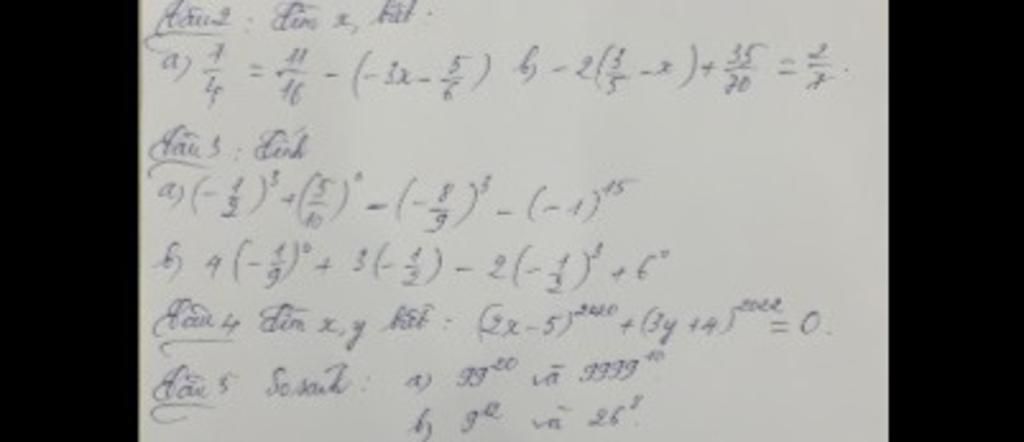 Câu 2 : Tìm x, biết.
a) 7/4 = 11/16 - (-3x - 5/6) b) -2(3/5 - x) + 35/70 = 2/7.
Câu 3 : Tính
a) (-1/2)³ + (5/10)⁰ - (-8/9)³ - (-1)¹⁵
b) 4(-1/9)⁰ + 3(-1/2) - 2(-1/2)³ + 6⁰
Câu 4 Tìm x, y biết : (2x-5)²⁰²⁰ + (3y+4)²⁰²² = 0.
Câu 5 So sánh : a) 99²⁰ và 9999¹⁰
b) 9¹² và 26⁸.